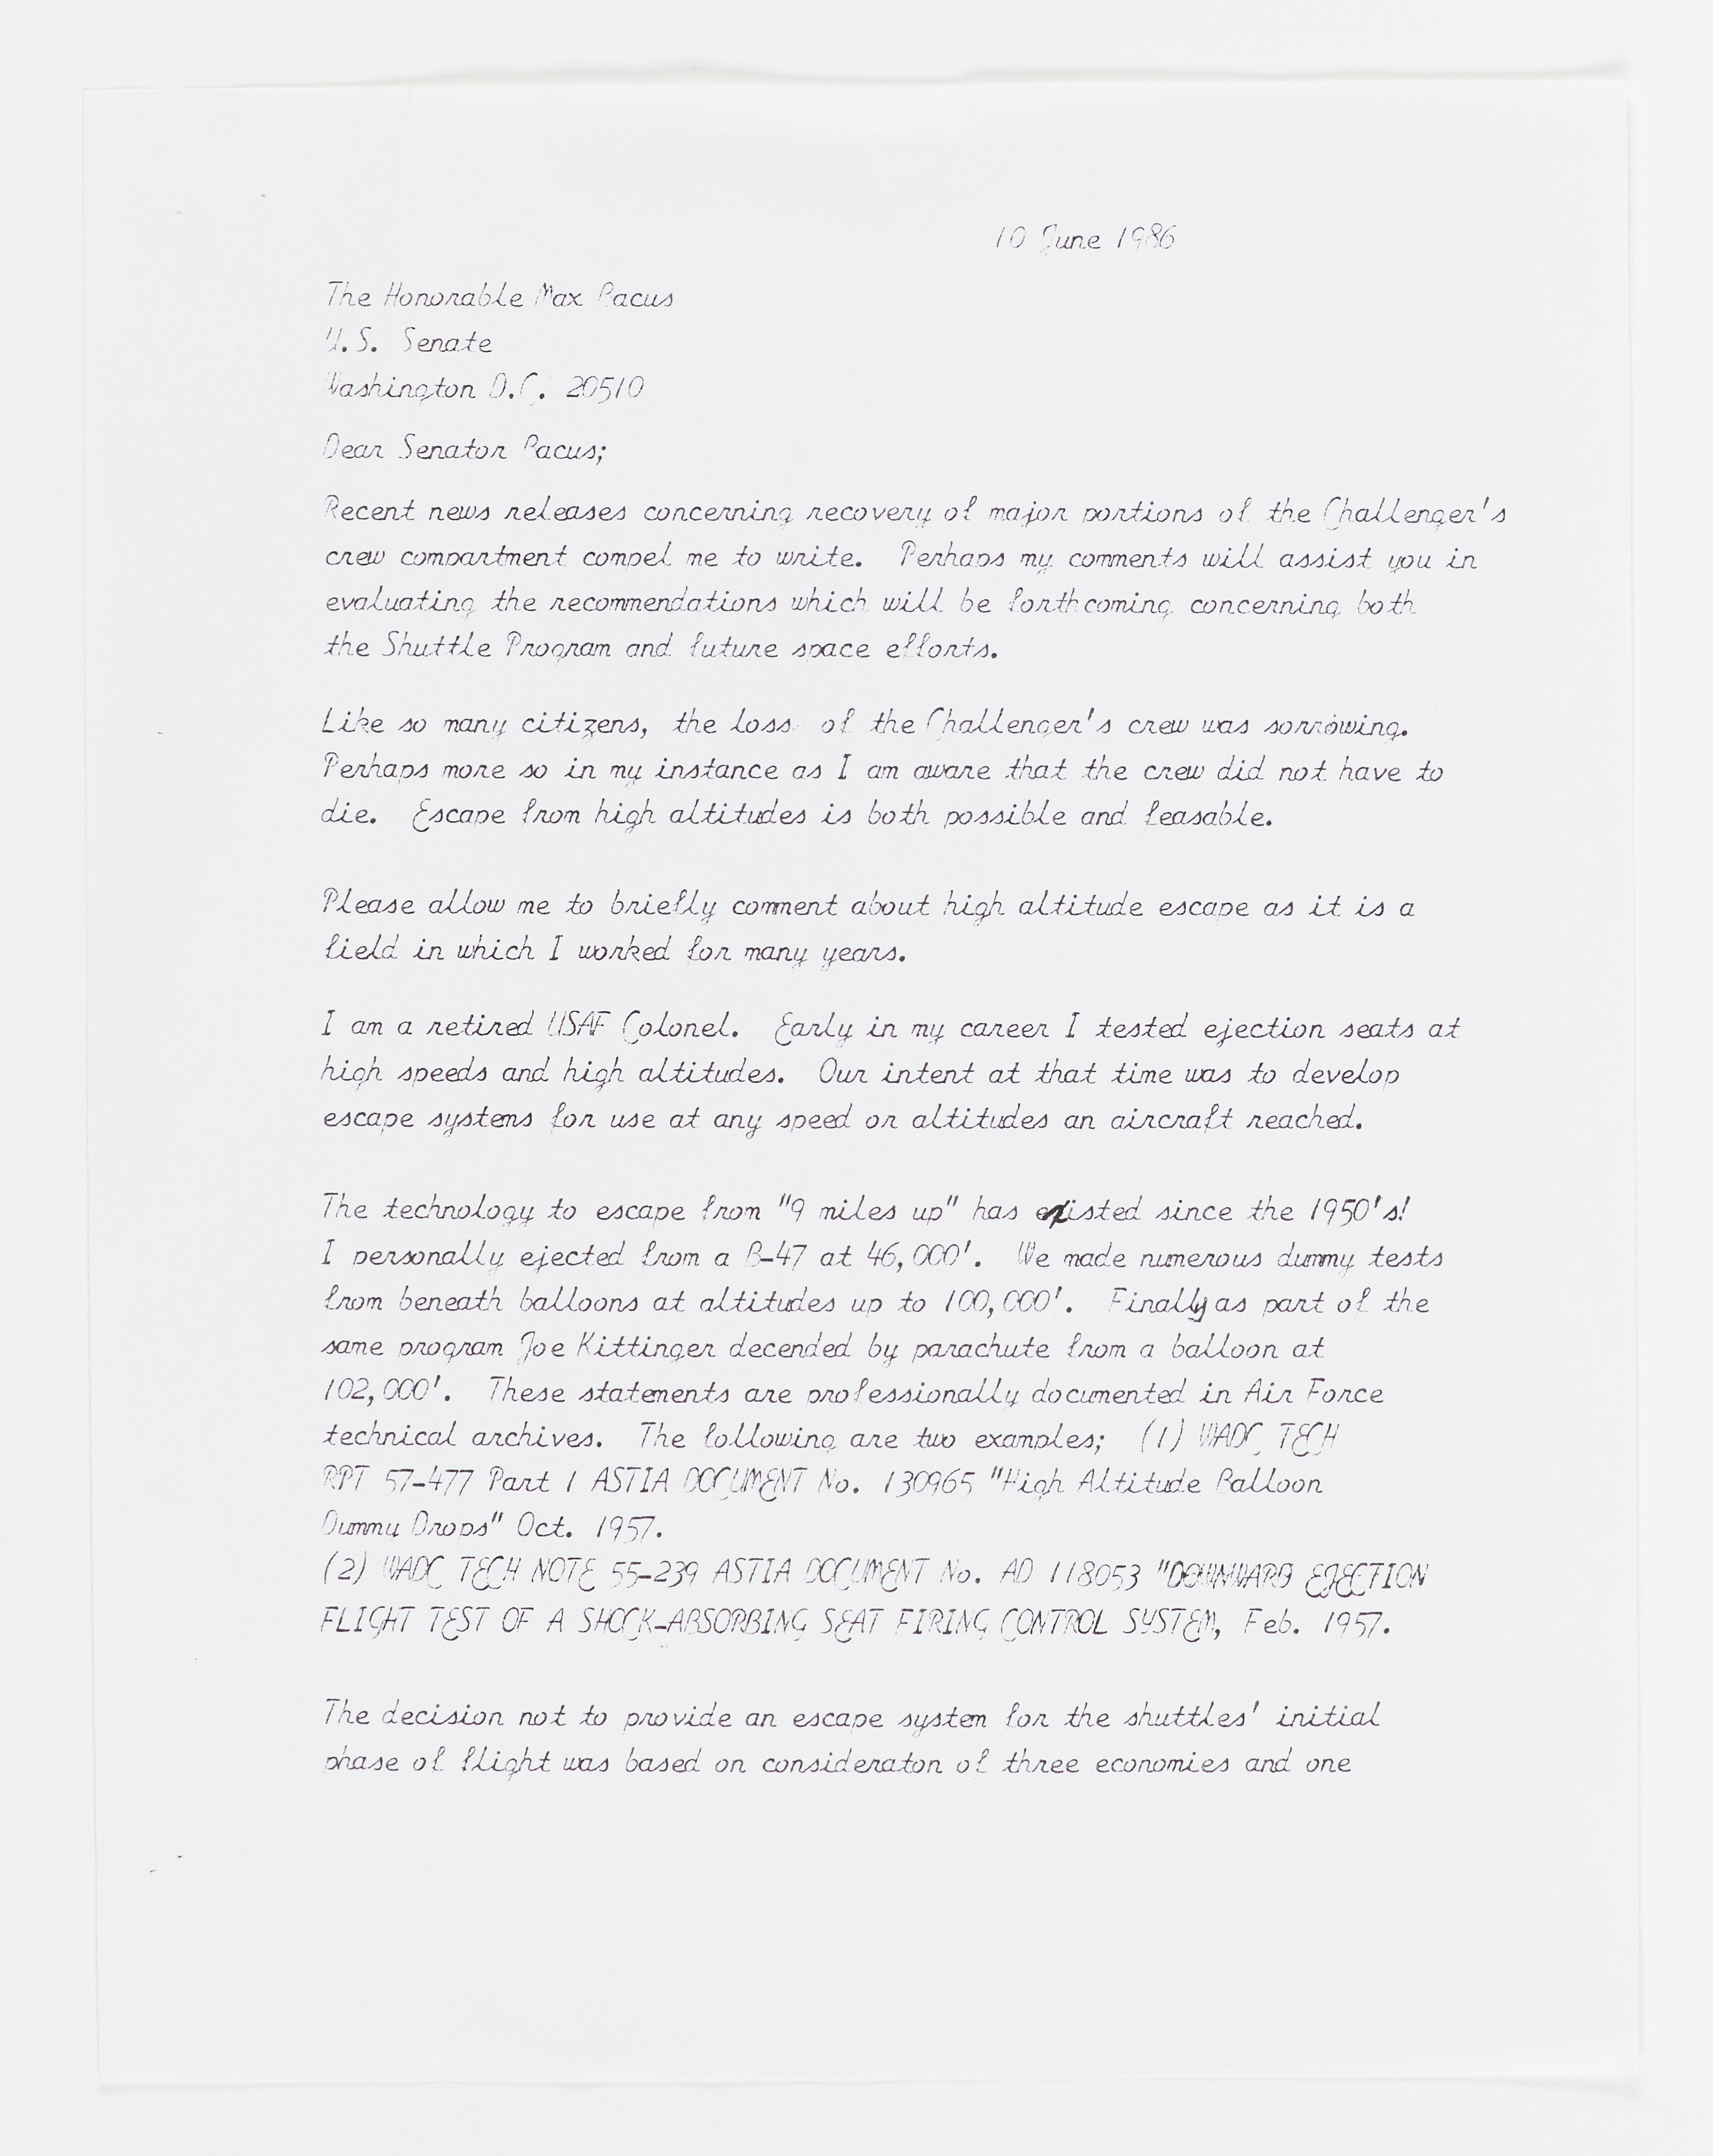 10 June 1986
The Honorable Max Bacus
U.S. Senate
Washington D.C. 20510
Dear Senator Bacus;
Recent news releases concerning recovery of major portions of the Challenger's
crew compartment compel me to write. Perhaps my comments will assist you in
evaluating the recommendations which will be forthcoming concerning both
the Shuttle Program and future space efforts.
Like so many citizens, the loss of the Challenger's crew was sorrowing.
Perhaps more so in my instance as I am aware that the crew did not have to
die. Escape from high altitudes is both possible and feasable.
Please allow me to briefly comment about high altitude escape as it is a
field in which I worked for many years.
I am a retired USAF Colonel. Early in my career I tested ejection seats at
high speeds and high altitudes. Our intent at that time was to develop
escape systems for use at any speed or altitudes an aircraft reached.
The technology to escape from "9 miles up" has existed since the 1950's!
I personally ejected from a B-47 at 46,000'. We made numerous dummy tests
from beneath balloons at altitudes up to 100,000'. Finally as part of the
same program Joe Kittinger decended by parachute from a balloon at
102,000'. These statements are professionally documented in Air Force
technical archives. The following are two examples; (1) WADC TECH
RPT 57-477 Part 1 ASTIA DOCUMENT No. 130965 "High Altitude Balloon
Dummy Drops" Oct. 1957.
(2) WADC TECH NOTE 55-239 ASTIA DOCUMENT No. AD 118053 "DOWNWARD EJECTION
FLIGHT TEST OF A SHOCK-ABSORBING SEAT FIRING CONTROL SYSTEM, Feb. 1957.
The decision not to provide an escape system for the shuttles' initial
phase of flight was based on consideraton of three economies and one